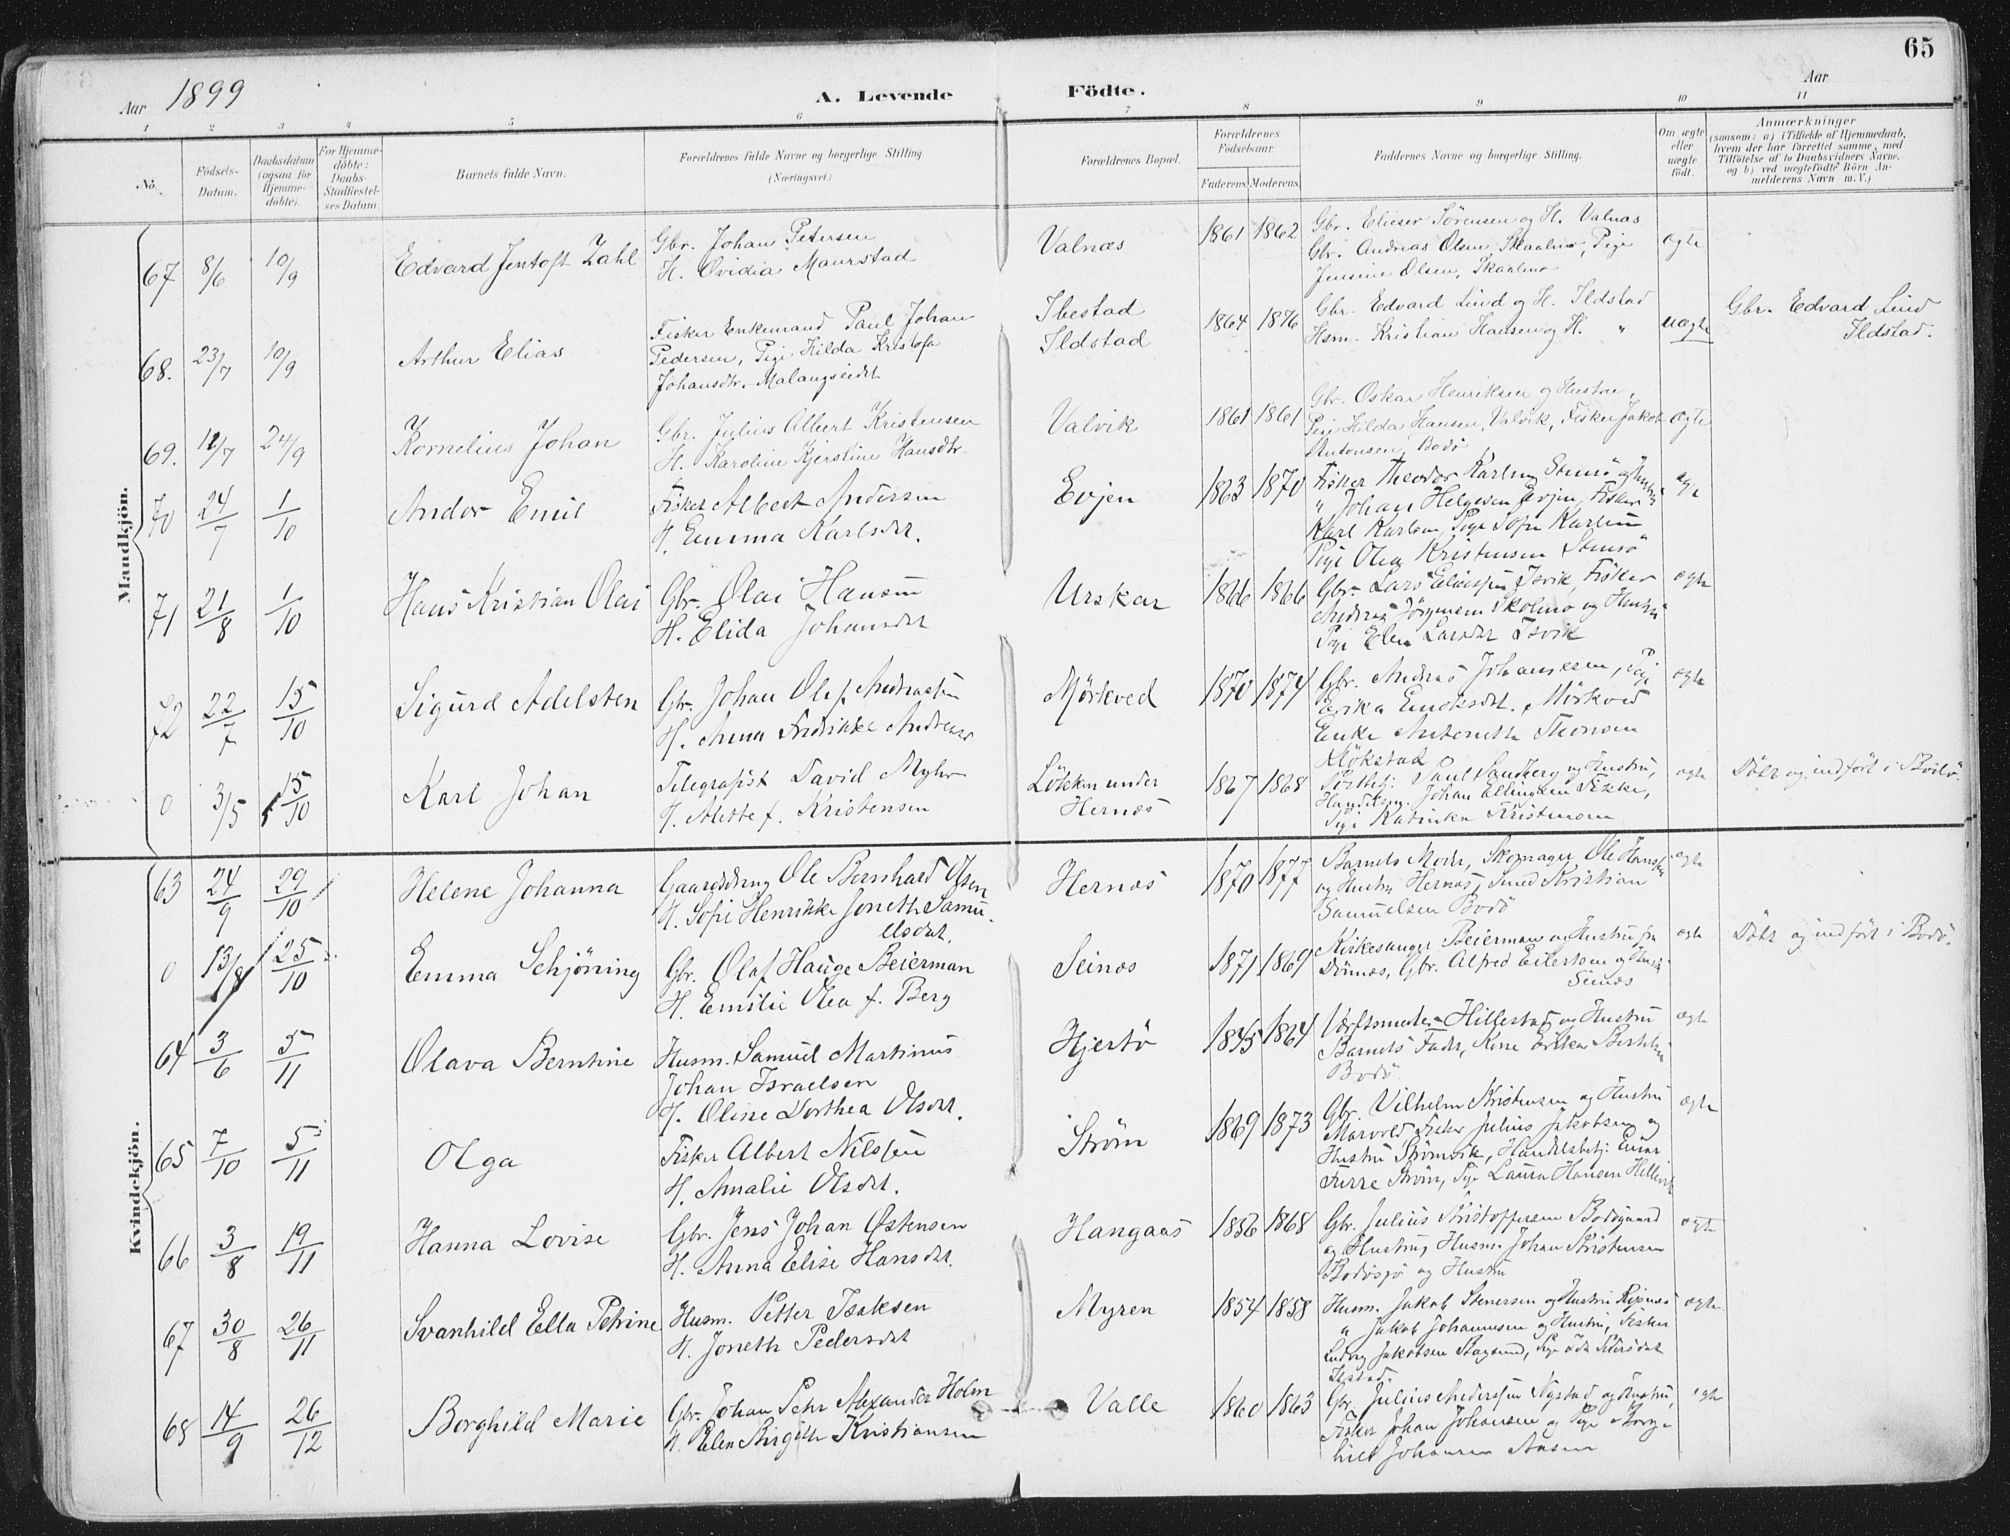 65
Aar 1899
A. Levende Födte.
Aar
1 2 3 4 5 6 7 8 9 10 11
No.
Födsels-Datum.
Daabsdatum (ogsaa for Hjemmedöbte).
For Hjemmedöbte: Daabs-Stadfæstelses Datum.
Barnets fulde Navn.
Forældrenes fulde Navne og borgerlige Stilling. (Næringsvei.)
Forældrenes Bopæl.
Forældrenes Fødselsaar.
Faderens. Moderens.
Faddernes Navne og borgerlige Stilling.
Om ægte eller uægte födt.
Anmærkninger
(saasom: a) i Tilfælde af Hjemmedaab,
hvem der har forrettet samme, med
Tilföielse af to Daabsvidners Navne,
og b) ved uægtefödte Börn An-
melderens Navn m. V.)
Mandkjön.
67 8/6 10/9 Edvard Jentoft Zahl
Gbr. Johan Petersen
H. Ovidia Maurstad
Valnæs 1861 1862
Gbr. Elieser Sörensen og H. Valnæs
Gbr. Andreas Olsen, Skaalmo, Pige
Jensine Olsen, Skaalmo
ægte
68. 23/7 10/9 Arthur Elias
Fisker Enkemand Paul Johan
Pedersen, Pige Hilda Kristofa
Johansdtr. Malangseidet
Ibestad
Ildstad
1864 1876
Gbr. Edvard Lind og H. Ildstad
Hsm. Kristian Hansen og H. "
uægte
Gbr. Edvard Lind
Ildstad.
69. 12/7 24/9 Kornelius Johan
Gbr. Julius Albert Kristensen
H. Karoline Kjerstine Hansdtr.
Valvik 1861 1861
Gbr. Oskar Henriksen og Hustru,
Pige Hilda Hansen, Valvik, Fisker Jakob
Antonsen, Bodö
ægte
70 24/7 1/10 Andor Emil
Fisker Albert Andersen
H. Emma Karlsdt.
Evjen 1863 1870
Fisker Theodor Karlsen Stensö og Hustru
" Johan Helgesen Evjen, Fisker
Karl Karlsen, Pige Sofie Karlsen
Pige Olea Kristensen Stensö
ægte
71 21/8 1/10 Hans Kristian Olai
Gbr. Olai Hansen
H. Elida Johansdt
Urskar 1866 1866
Gbr. Lars Eliassen Isvik, Fisker
Andreas Jörgensen Skolmo og Hustru
Pige Elen Larsdt Isvik
ægte
72 22/7 15/10 Sigurd Adelsten
Gbr. Johan Olof Andreassen
H. Anna Fredrikke Andreasd
Mørkved 1870 1874
Gbr. Andreas Johannesen, Pige
Erika Enoksdt. Mörkved
Enke Antonette Thomsen
Klökstad
ægte
0 3/5 15/10 Karl Johan
Telegrafist David Myhr
H. Alette f. Kristensen
Lökken under
Hernes
1867 1868
Postbetj. Paul Sandberg og Hustru,
Handelsm. Johan Ellingsen Fiske,
Pige Katinka Kristensen
ægte
Döbt og indfört i Bodö
Kvindekjön.
63 24/9 29/10 Helene Johanna
Gaardddreng Ole Bernhard Olsen
H. Sofie Henrikke Joneth Samu-
elsdat.
Hernæs 1870 1877
Barnets Moder, Skomager Ole Hansen
og Hustru Hernes, Smed Kristian
Samuelsen Bodö
ægte
0 13/8 25/10 Emma Schjöning
Gbr. Olaf Hauge Beierman
H. Emilie Olea f. Berg
Seines 1871 1869
Kirkesanger Beierman og Hustru fra
Dönnes, Gbr. Alfred Eilertsen og Hustru
Seines
ægte
Döbt og indfört i Bodö.
64 3/6 5/11 Olava Berntine
Husm. Samuel Martinus
Johan Israelsen
H. Oline Dorthea Olsdt.
Hjertö 1845 1864
Værftsmeder Hillestad og Hustru
Barnets Fader, Kone Erika Bertelsen
Bodö
ægte
65 7/10 5/11 Olga
Fisker Albert Nilssen
H. Amalie Olsdt.
Ström 1869 1873
Gbr. Vilhelm Kristensen og Hustru
Marvold, Fisker Julius Jakobsen og
Hustru Strömvik, Handelsbetj. Einar
Furre Ström, Pige Laura Hansen Hellevik
ægte
66 3/8 19/11 Hanna Lovise
Gbr. Jens Johan Østensen
H. Anna Elise Hansdt.
Hangaas 1856 1868
Gbr. Julius Kristoffersen Bodögaard
og Hustru, Husm. Johan Kristensen
Bodösjö og Hustru
ægte
67 30/8 26/11 Svanhild Ella Petrine
Husm. Petter Isaksen
H. Joneth Pedersdt
Myren 1854 1858
Husm. Jakob Stenersen og Hustru Ripnes
" Jakob Johannesen og Hustru, Fisker
Ludvig Jakobsen Skagsund, Pige
Ilstad.
ægte
68 14/9 26/12 Borghild Marie
Gbr. Johan Peter Alexander Holm
H. Elen Birgithe Kristiansen
Valle 1860 1863
Gbr. Julius Anderssen Nystad og Hustru,
Fisker Johan Johansen og Pige Borg-
hild Johansen Aasen
ægte